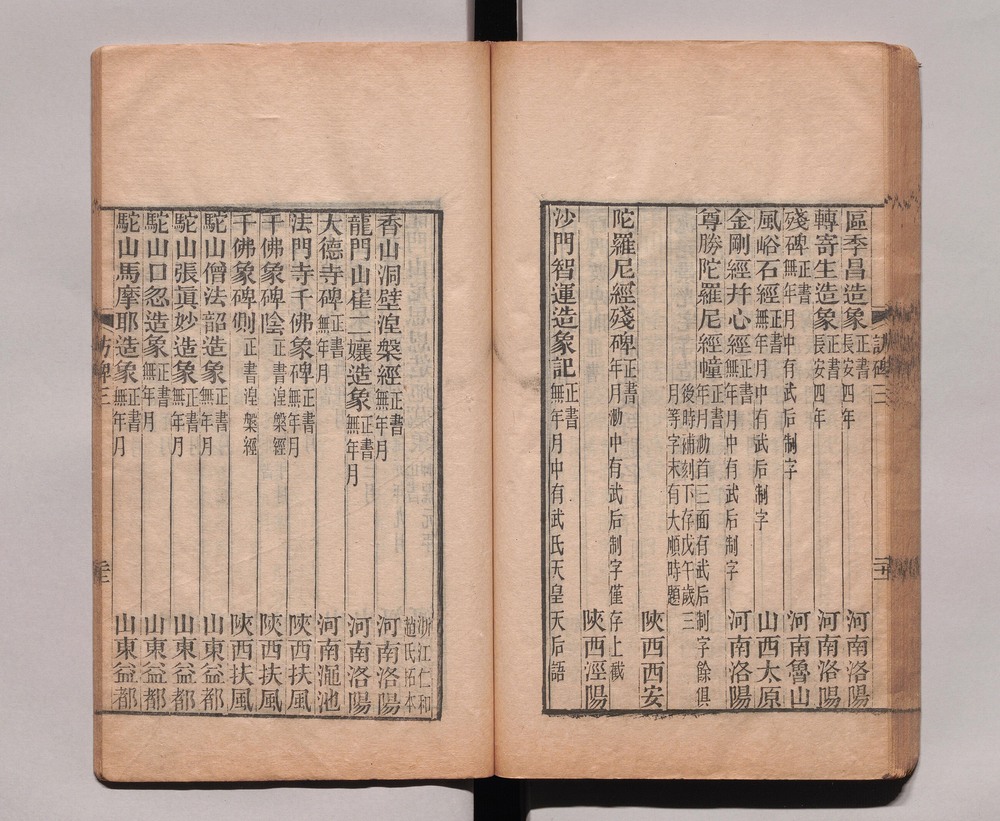 區季昌造象正書長安四年 河南洛陽
轉寄生造象正書長安四年 河南洛陽
殘碑正書無年月中有武后制字 河南魯山
風峪石經正書無年月中有武后制字 山西太原
金剛經幷心經正書無年月中有武后制字 河南洛陽
尊勝陀羅尼經幢正書年月泐首三面有武后制字餘俱
後時補刻下存戊午歲三月等字末有大順時題 陝西西安
陀羅尼經殘碑正書年月泐中有武后制字僅存上截
陝西涇陽
沙門智運造象記正書無年月中有武氏天皇天后語
浙江仁和趙氏拓本
香山洞壁湼槃經正書無年月 河南洛陽
龍門山崔王孃造象正書無年月 河南洛陽
大德寺碑正書無年月 河南澠池
法門寺千佛象碑正書無年月 陝西扶風
千佛象碑陰正書湼槃經 陝西扶風
千佛象碑側正書湼槃經 陝西扶風
駝山僧法韶造象正書無年月 山東益都
駝山張眞妙造象正書無年月 山東益都
駝山口忍造象正書無年月 山東益都
駝山馬摩耶造象正書無年月 山東益都